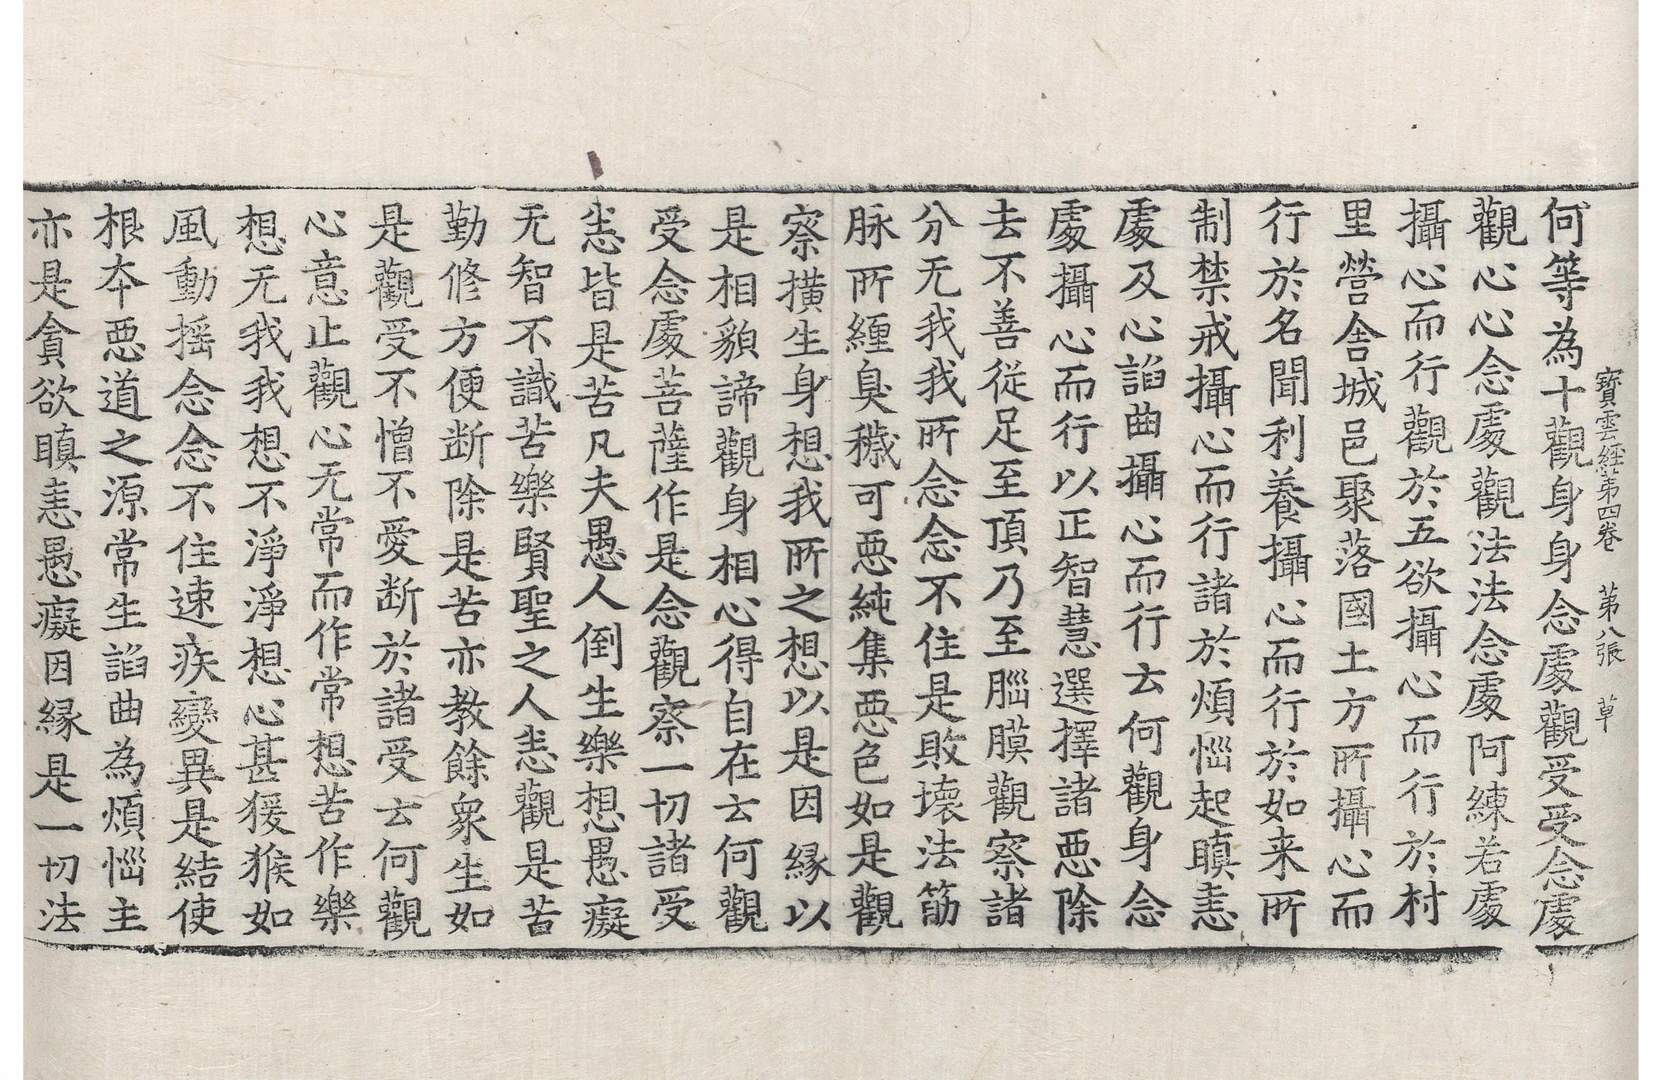 寶雲經第四卷 第八張 草
何等為十觀身身念處觀受受念處
觀心心念處觀法法念處阿練若處
攝心而行觀於五欲攝心而行於村
里營舍城邑聚落國土方所攝心而
行於名聞利養攝心而行於如来所
制禁戒攝心而行諸於煩惱起瞋恚
處及心諂曲攝心而行云何觀身念
處攝心而行以正智慧選擇諸惡除
去不善從足至頂乃至腦膜觀察諸
分无我我所念念不住是敗壞法筋
脉所纏臭穢可惡純集惡色如是觀
察橫生身想我所之想以是因緣以
是相貌諦觀身相心得自在云何觀
受念處菩薩作是念觀察一切諸受
恚皆是苦凡夫愚人倒生樂想愚癡
无智不識苦樂賢聖之人恚觀是苦
勤修方便断除是苦亦教餘衆生如
是觀受不憎不愛断於諸受云何觀
心意止觀心无常而作常想苦作樂
想无我我想不淨淨想心甚猨猴如
風動揺念念不住速疾變異是結使
根本惡道之源常生諂曲為煩惱主
亦是貪欲瞋恚愚癡因緣是一切法